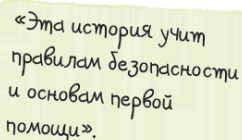 «Эта история учит
правилам безопасности
и основам первой
помощи».